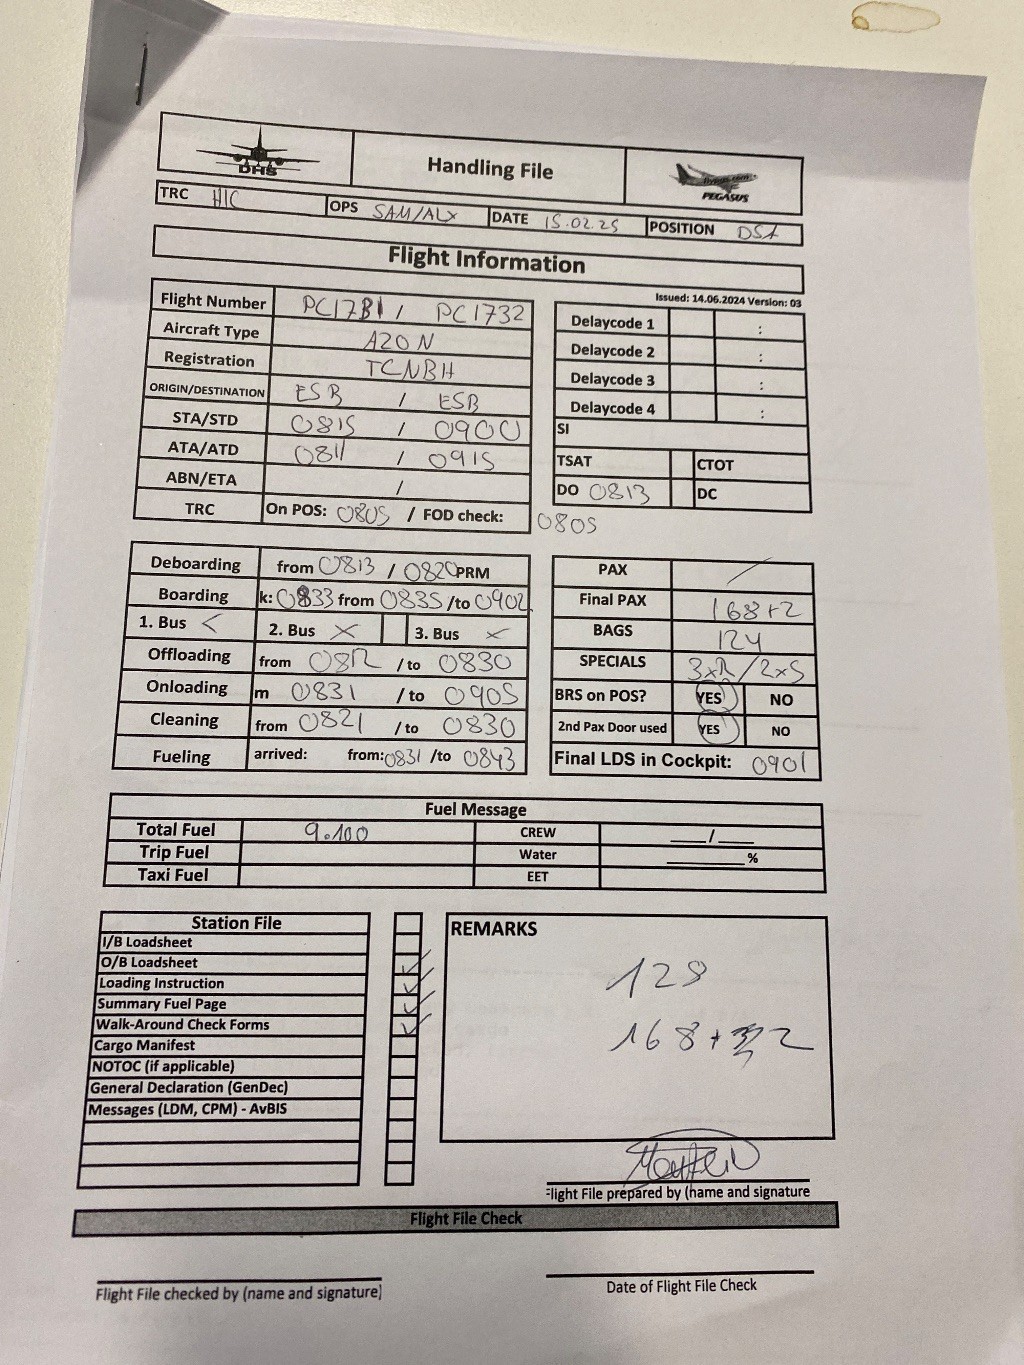 DHS
Handling File
flypgs.com
PEGASUS
TRC HIC OPS SAM/ALX DATE 15.02.25 POSITION
Flight Information
Issued: 14.06.2024 Version: 03
Flight Number PC1731 / PC1732
Aircraft Type A20N
Registration TCNBH
ORIGIN/DESTINATION ESB / ESB
STA/STD 0815 / 0900
ATA/ATD 0811 / 0915
ABN/ETA /
TRC On POS: 0805 / FOD check: 0805
Delaycode 1 :
Delaycode 2 :
Delaycode 3 :
Delaycode 4 :
SI
TSAT CTOT
DO 0813 DC
Deboarding from 0813 / 0820 PRM
Boarding k: 0833 from 0835 /to 0902
1. Bus 2. Bus X 3. Bus X
Offloading from 0812 /to 0830
Onloading m 0831 /to 0905
Cleaning from 0821 /to 0830
Fueling arrived: from: 0831 /to 0843
PAX /
Final PAX 168+2
BAGS 124
SPECIALS 3xR/2xS
BRS on POS? YES NO
2nd Pax Door used YES NO
Final LDS in Cockpit: 0901
Fuel Message
Total Fuel 9.100 CREW ___/___
Trip Fuel Water ______%
Taxi Fuel EET
Station File
I/B Loadsheet
O/B Loadsheet ✓
Loading Instruction ✓
Summary Fuel Page ✓
Walk-Around Check Forms ✓
Cargo Manifest
NOTOC (if applicable)
General Declaration (GenDec)
Messages (LDM, CPM) - AvBIS
REMARKS
128
168+2
Flight File prepared by (name and signature
Flight File Check
Flight File checked by (name and signature)
Date of Flight File Check